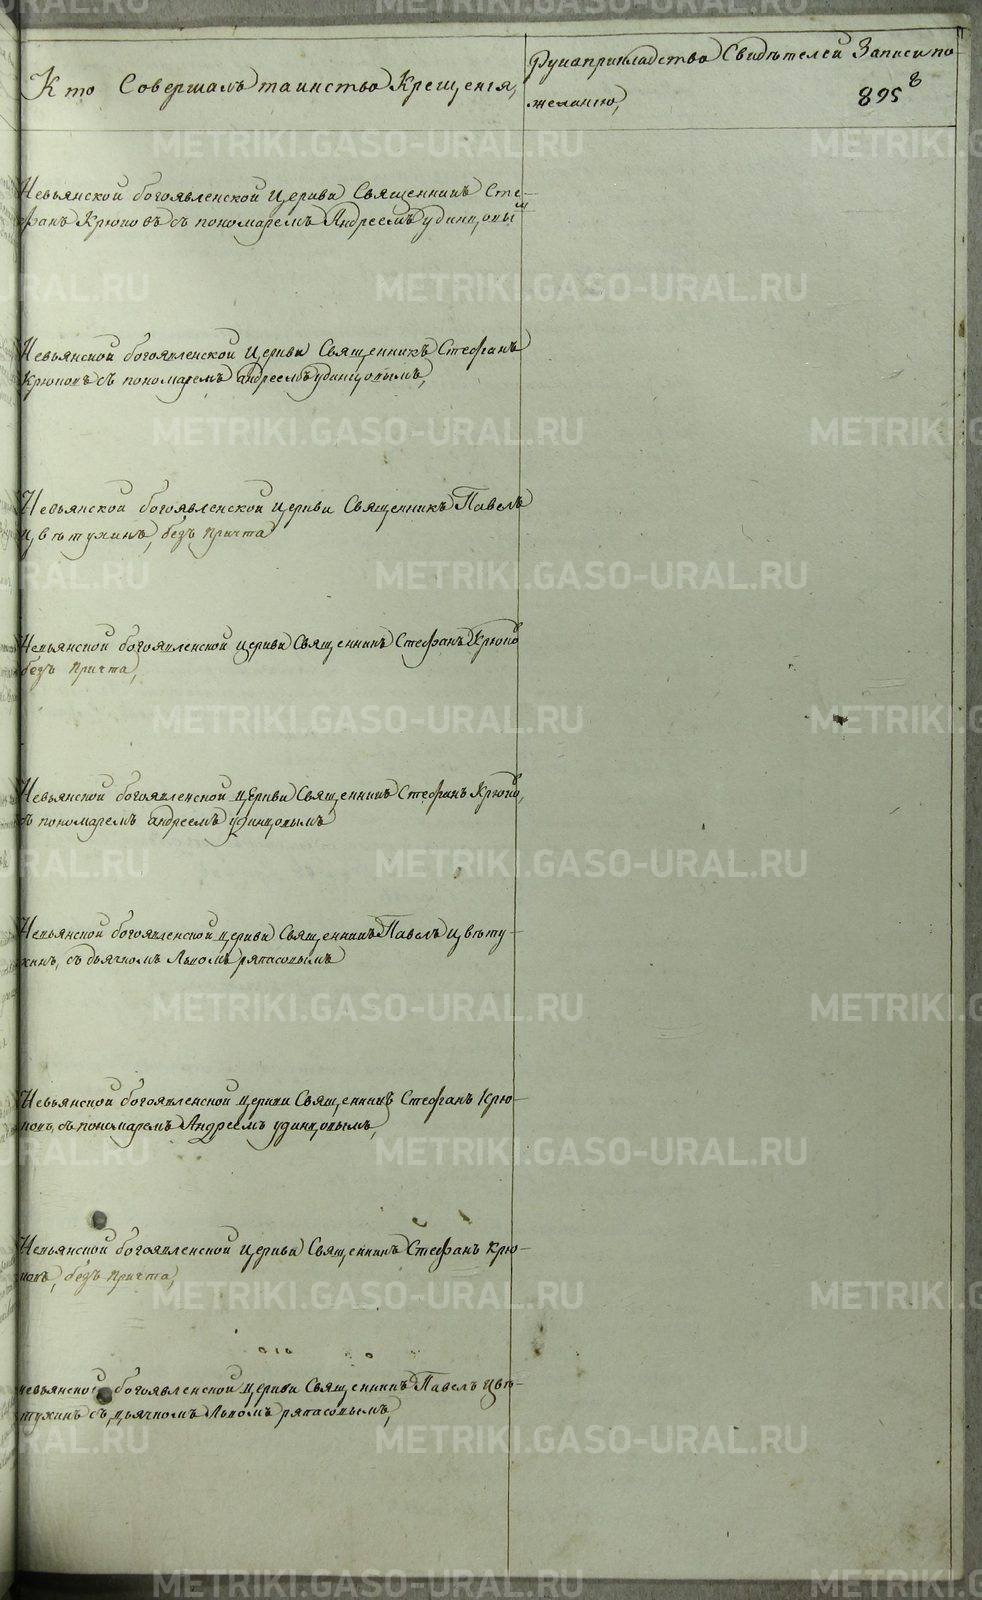 Кто Совершалъ таинство Крещенія,
Рукоприкладство Свидѣтелей Записи по
желанію,
895
8
Невьянской богоявленской Церкви Священникъ Сте-
фанъ Крюковъ съ пономаремъ Андреемъ удинцовым
Невьянской богоявленской Церкви Священникъ Стефанъ
Крюковъ съ пономаремъ андреемъ удинцовымъ,
Невьянской богоявленской Церкви Священникъ Павелъ
Цвѣтухинъ, безъ причта
Невьянской богоявленской Церкви Священникъ Стефанъ Крюков
безъ Причта,
Невьянской богоявленской Церкви Священникъ Стефанъ Крюков,
съ пономаремъ андреемъ удинцовымъ
Невьянской богоявленской церкви Священникъ Павелъ Цвѣту-
хинъ, съ дьячкомъ Львомъ ряпасовымъ
Невьянской богоявленской церкви Священникъ Стефанъ Крю-
ковъ, съ пономаремъ Андреемъ удинцовымъ,
Невьянской богоявленской Церкви Священникъ Стефанъ Крю-
ковъ, безъ Причта,
невьянской богоявленской Церкви Священникъ Павелъ Цвѣ-
тухинъ съ дьячкомъ Львомъ ряпасовымъ,
METRIKI.GASO-URAL.RU